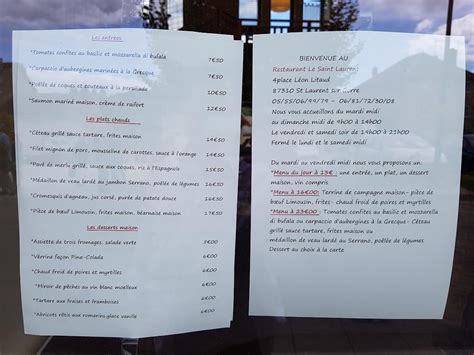 Les entrées
*Tomates confites au basilic et mozzarella di bufala
7€50
*Carpaccio d'aubergines marinées à la Grecque
7€50
*Poêlée de coques et couteaux à la persillade
10€50
*Saumon mariné maison, crème de raifort
12€50
Les plats chauds
*Céteau grillé sauce tartare, frites maison
14€50
*Filet mignon de porc, mousseline de carottes, sauce à l'orange
14€50
*Pavé de merlu grillé, sauce aux coques, riz à l'Espagnole
15€50
*Médaillon de veau lardé au jambon Serrano, poêlée de légumes
16€50
*Cromesquis d'agneau, jus corsé, purée de patate douce
16€50
*Pièce de bœuf Limousin, frites maison, béarnaise maison
17€50
Les desserts maison
*Assiette de trois fromages, salade verte
5€00
*Vérrine façon Pina-Colada
6€00
*Chaud froid de poires et myrtilles
6€00
*Miroir de pêches au vin blanc moelleux
6€00
*Tartare aux fraises et framboises
6€00
*Abricots rôtis aux romarins, glace vanille
6€00
BIENVENUE AU
Restaurant Le Saint Laurent
4place Léon Litaud
87310 St Laurent sur Gorre
05/55/06/99/79 - 06/81/72/30/08
Nous vous accueillons du mardi midi
au dimanche midi de 9h00 à 14h00
Le vendredi et samedi soir de 19h00 à 21h00
Fermé le lundi et le samedi midi
Du mardi au vendredi midi nous vous proposons un:
*Menu du jour à 13€ : une entrée, un plat, un dessert
maison, vin compris
*Menu à 16€00: Terrine de campagne maison- pièce de
bœuf Limousin, frites- chaud froid de poires et myrtilles
*Menu à 23€00- Tomates confites au basilic et mozzarella
di bufala ou carpaccio d'aubergines à la Grecque- Céteau
grillé sauce tartare, frites maison ou
médaillon de veau lardé au Serrano, poêlée de légumes
Dessert au choix à la carte